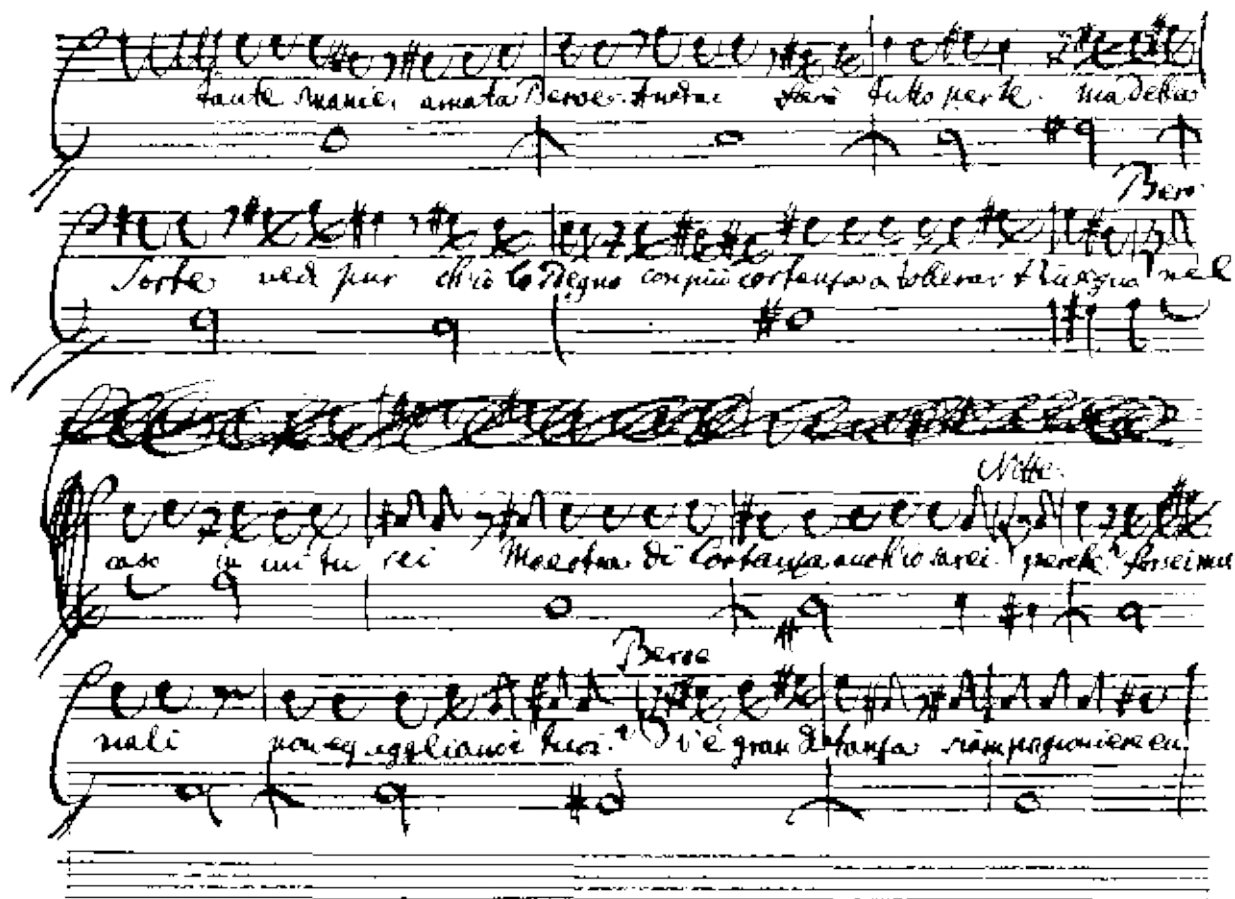 tante smanie, amata Beroe. Andrai farò tutto per te. ma della
Beroe
Sorte vedi pur ch'io lo sdegno con più costanza a tollerar t'insegno nel
Nitte.
caso in cui tu sei Maestra di Costanza anch'io sarei. perché? forse i miei
Beroe
mali non eguagliano i tuoi? v'è gran distanza siam prigioniere